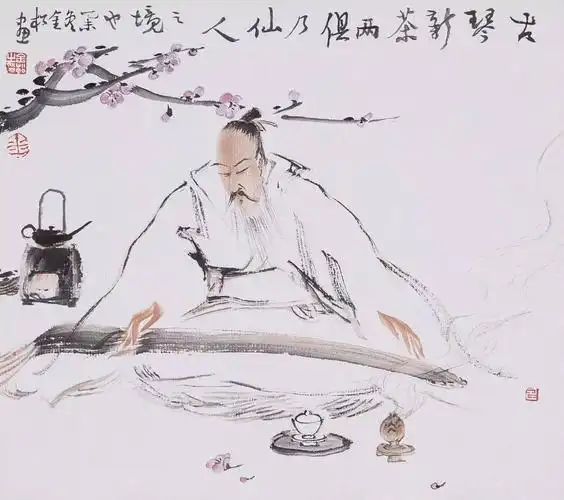 古琴新茶两俱乃仙人之境也
画